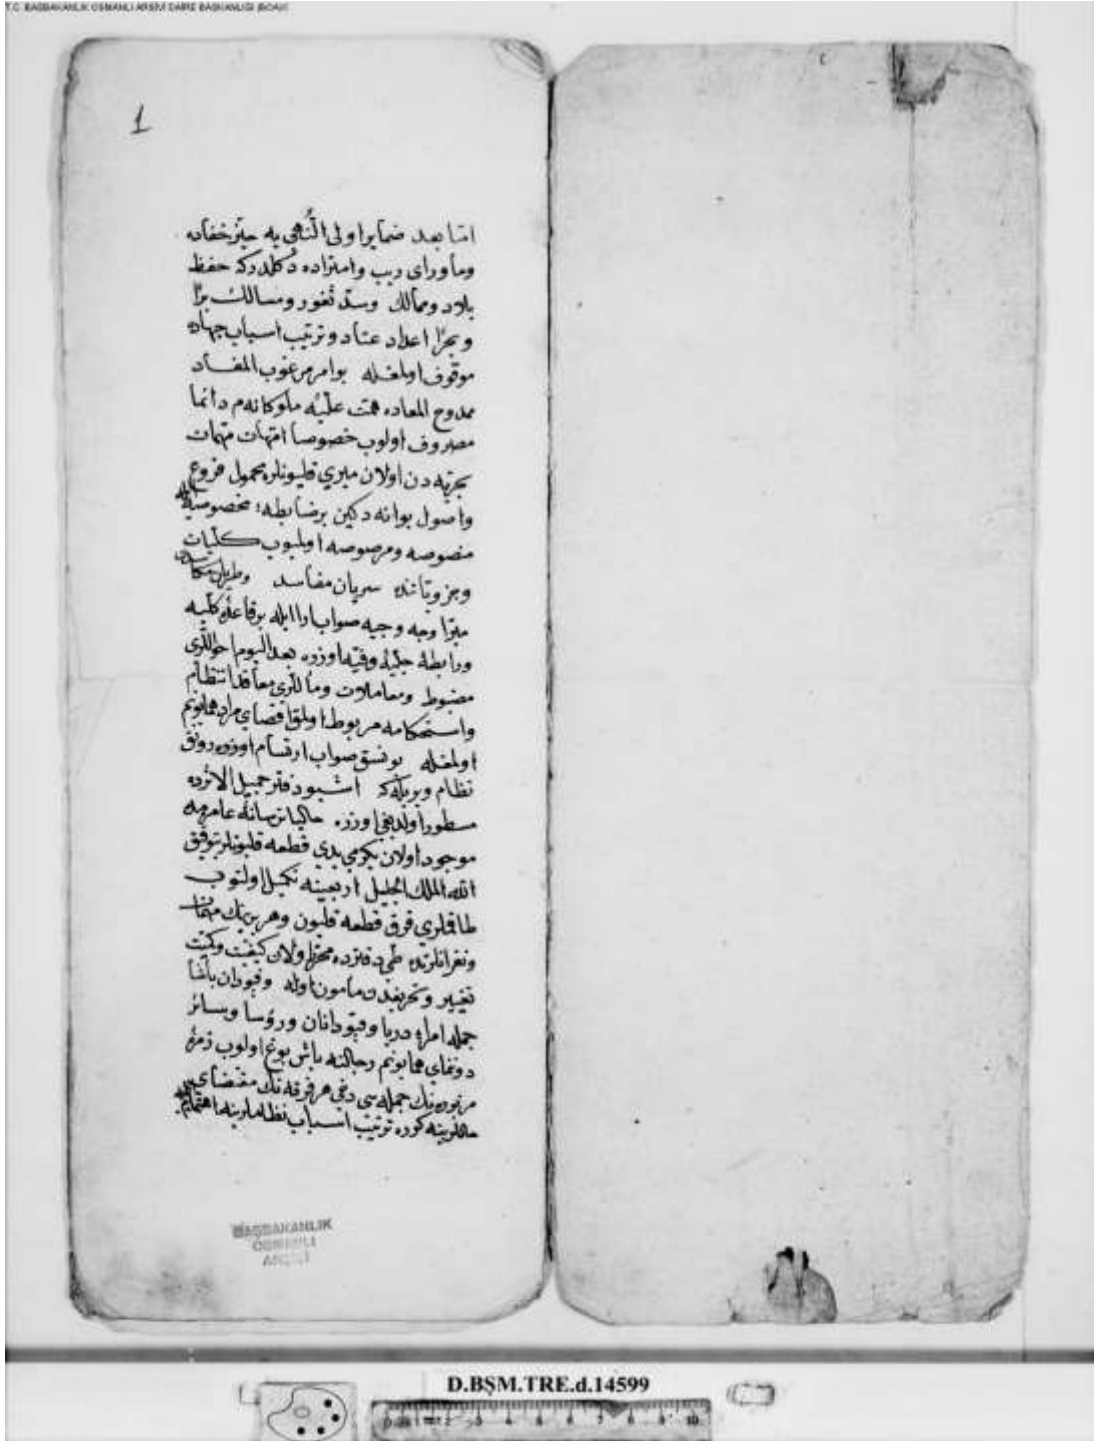 T.C. BAŞBAKANLIK OSMANLI ARŞİVİ DAİRE BAŞKANLIĞI (BOA)
1
اما بعد ضمایر اولی النهی یه حیز خفاده
وماورای ریب وامتراده دکلدرکه حفظ
بلاد وممالک وسد ثغور ومسالک برا
وبحرا اعداد عتاد وترتیب اسباب جهاده
موقوف اولمغله بو امر مرغوب المفاد
ممدوح المعاده همت علیه ملوکانه م دائما
مصروف اولوب خصوصا امهات مهمات
بحریه دن اولان میری قلیونلره محمول فروع
واصول بو انه دکین بر ضابطه مخصوصه ایله
منصوصه ومرصوصه اولمیوب کلیات
وجزویاتنده سریان مفاسد وطریان مکاسددن
مبرا وجه وجیه صواب ارا ایله بر قاعده کلیه
ورابطه جلیه وفیه اوزره بعد الیوم احواللری
مضبوط ومعاملات ومأللری معاقد انتظام
واستحکامه مربوط اولمق اقصای مراد همایونم
اولمغله بو نسق صواب ارتسام اوزره رونق
نظام ویریلکه اشبو دفتر جمیل الاثرده
مسطور اولدیغی اوزره حالیا ترسانه عامره مده
موجود اولان یکرمی یدی قطعه قلیونلر بتوفیق
الله الملک الجلیل اربعینه تکمیل اولنوب
طاقملری قرق قطعه قلیون وهر برینک مهمات
ونفراتلرنده طی دفترده محرر اولان کیفیت وکمیت
تغییر وتحریفدن مأمون اوله وقپودان پاشا
جمله امراء دریا وقپودانان ورؤسا وسائر
دونمای همایونم رجالنه باش بوغ اولوب زمره
مرقومه نک جمله سی دخی هر فرقه نک مقتضای
حاللرینه کوره ترتیب اسباب نظاملرینه اهتمام
BAŞBAKANLIK
OSMANLI
ARŞİVİ
D.BŞM.TRE.d.14599
0 1 2 3 4 5 6 7 8 9 10